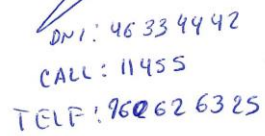 DNI: 46334442
CALL: 11455
TELF: 960626325